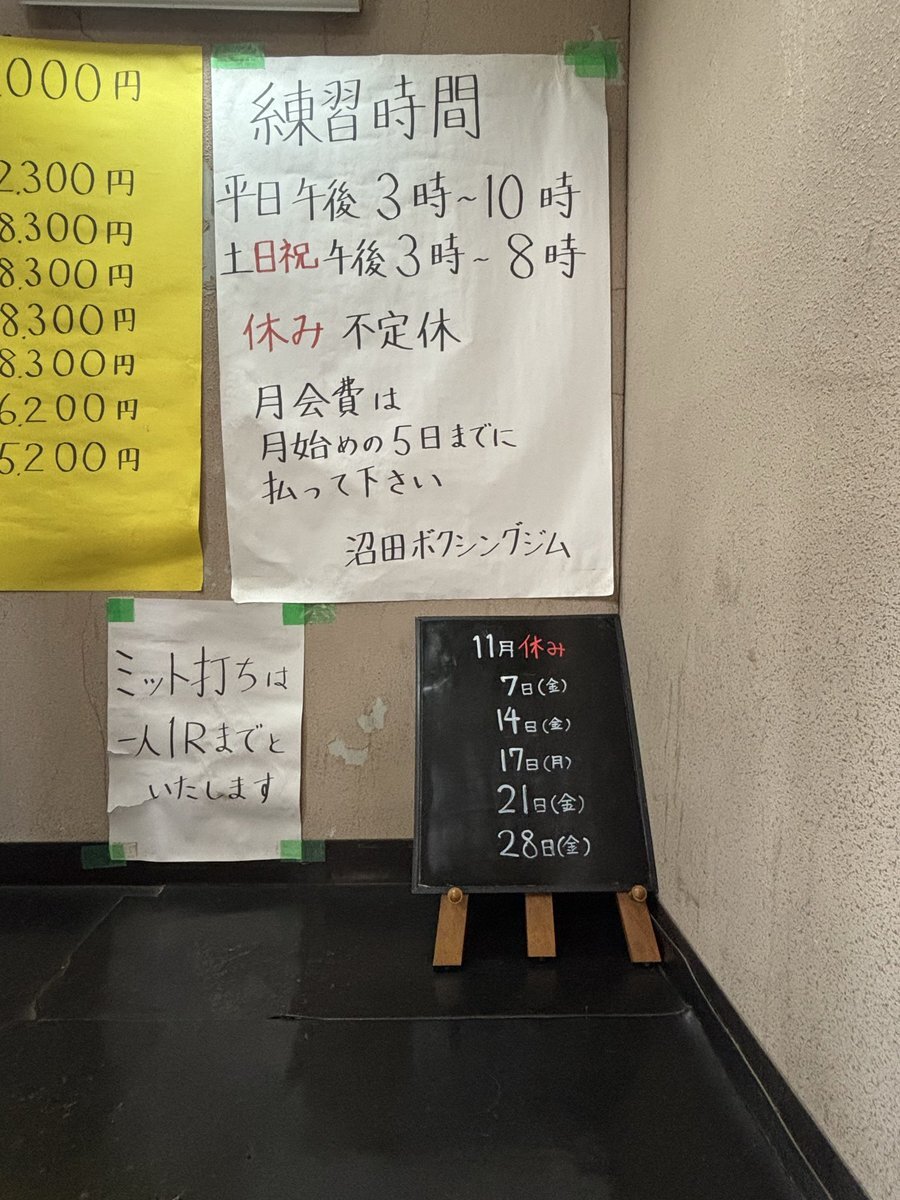 000円
2.300円
8.300円
8.300円
8.300円
8.300円
6.200円
5.200円
練習時間
平日午後3時~10時
土日祝午後3時~8時
休み 不定休
月会費は
月始めの5日までに
払って下さい
沼田ボクシングジム
ミット打ちは
一人1Rまでと
いたします
11月休み
7日(金)
14日(金)
17日(月)
21日(金)
28日(金)